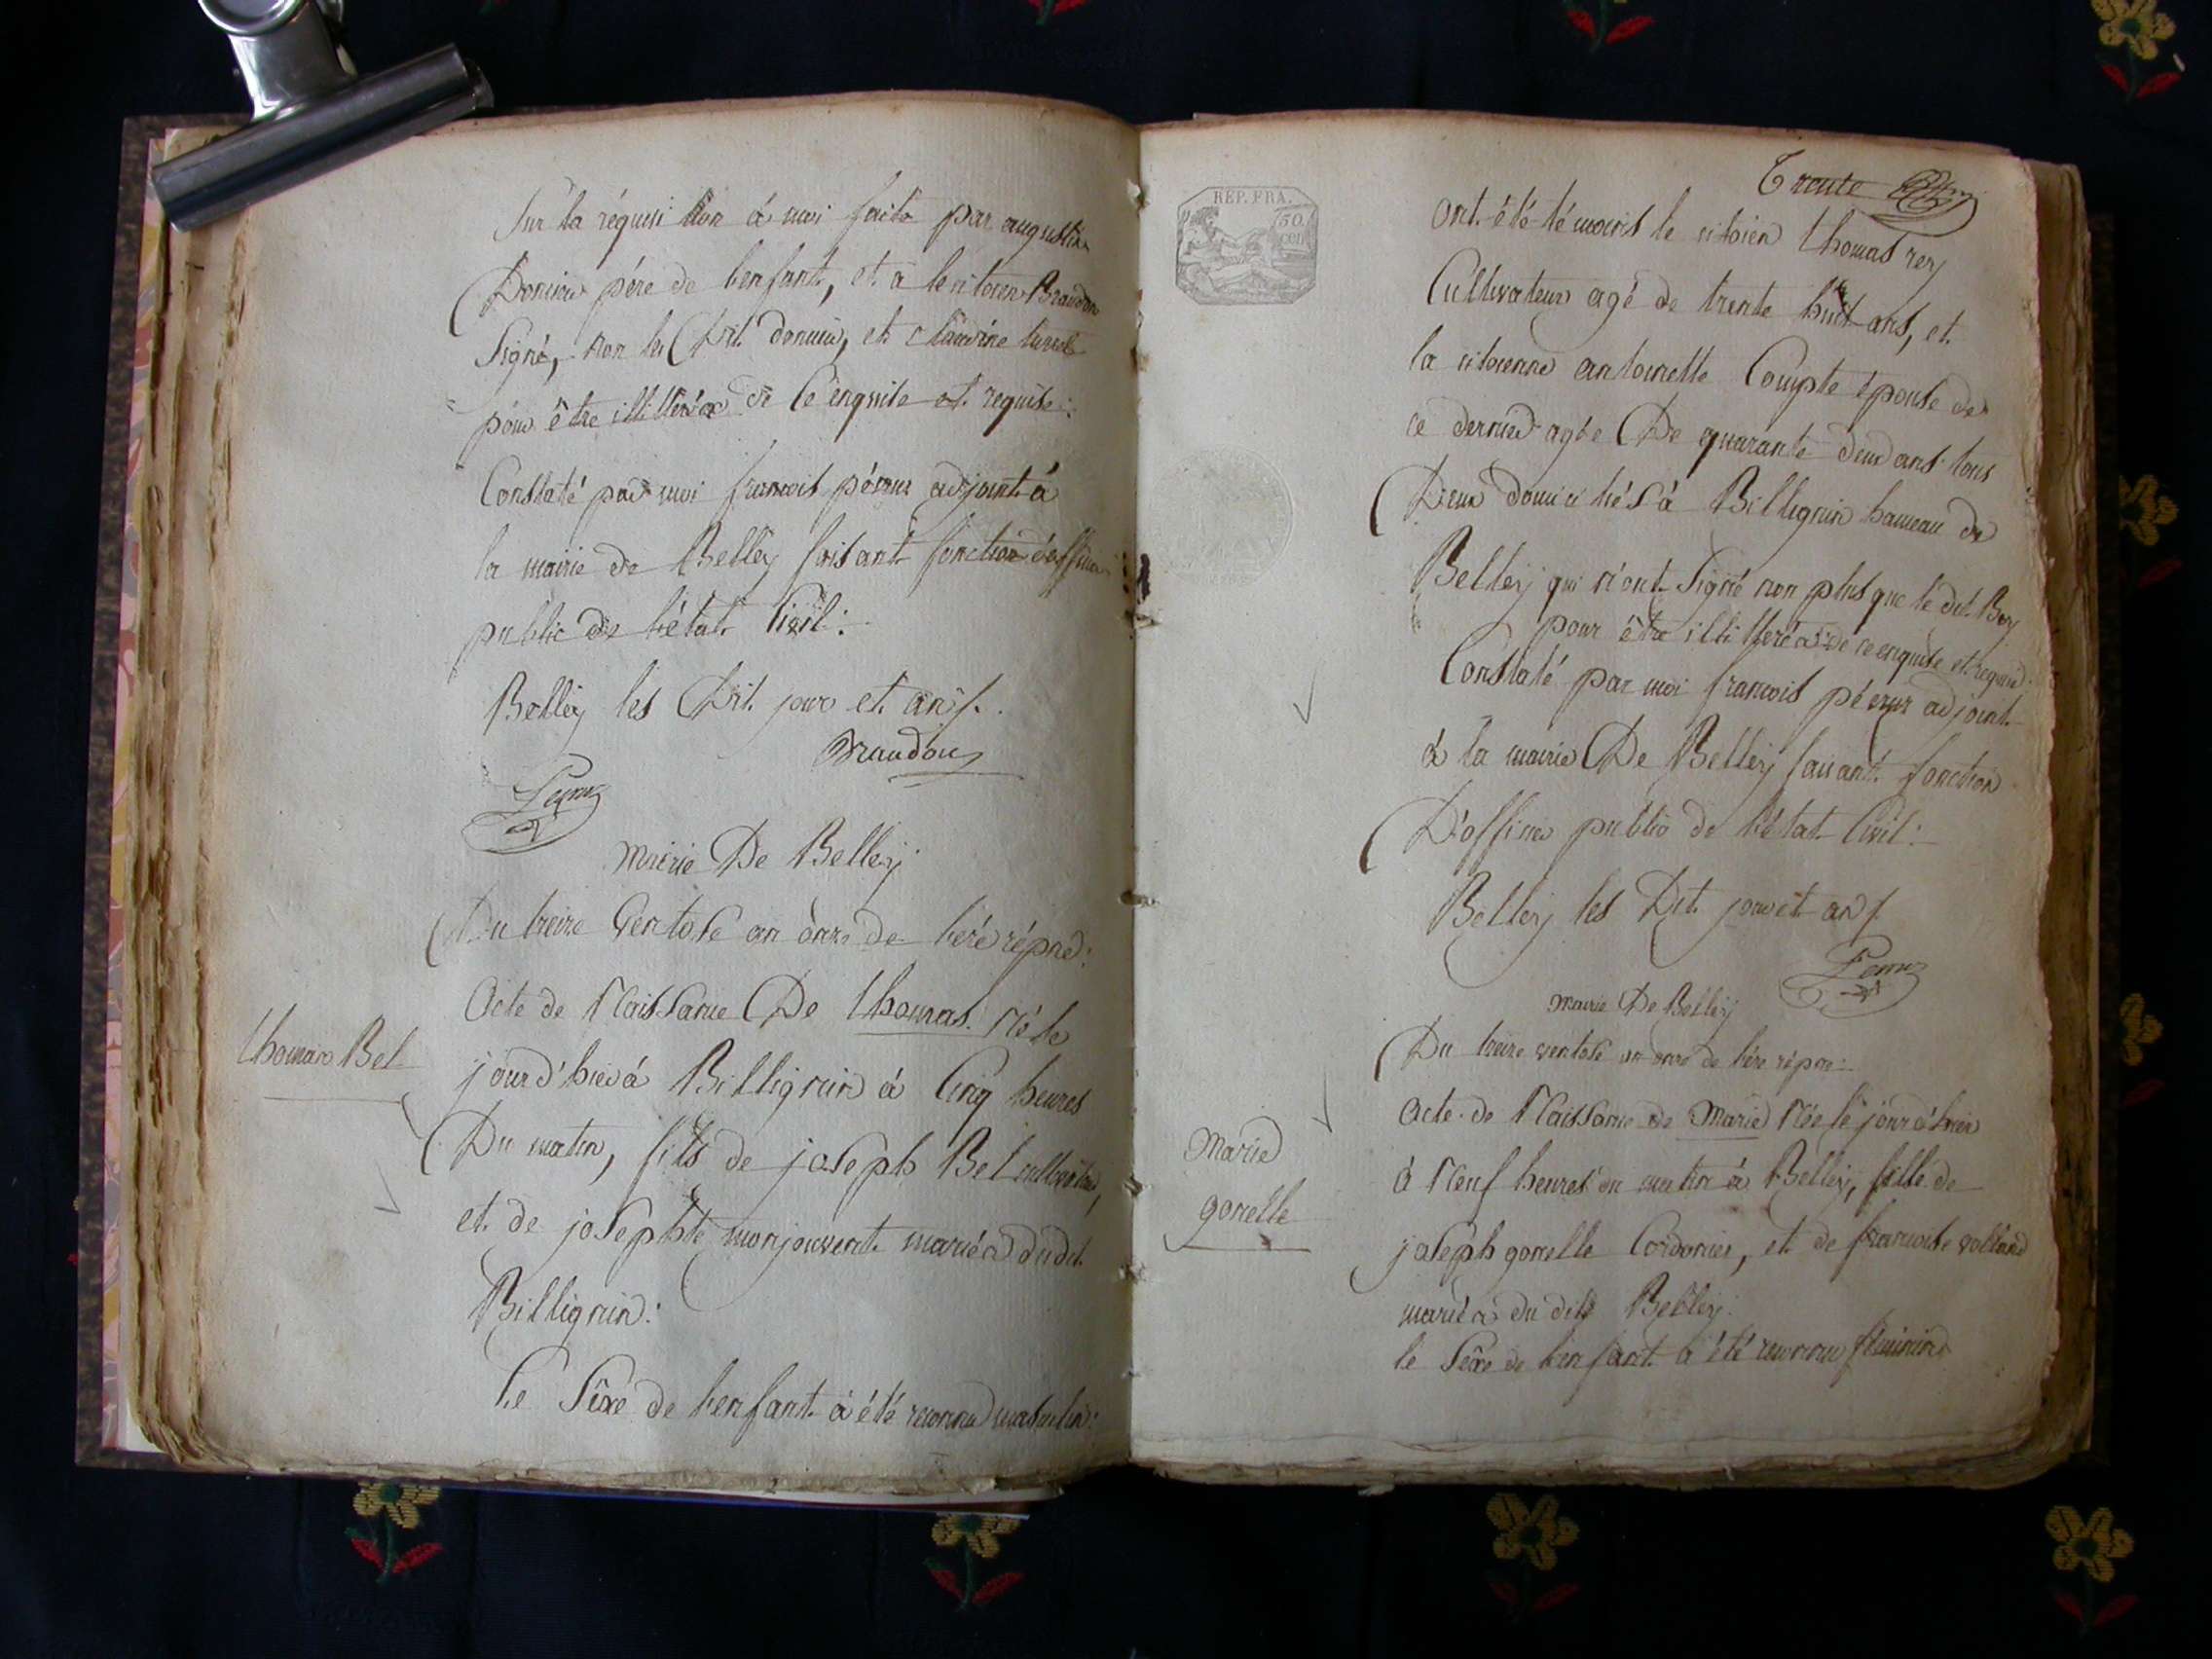 Sur la réquisition à moi faite par augustin
père de lenfant, et a le citoien Braudon
Signé, non les Dit et
pour être illitérés de ce enquise et requise:
Constaté par moi francois adjoint à
la mairie de Belley faisant fonction d'officier
public de l'état Civil:
Belley les Dit jour et an /.
Braudon
mairie De Belley
Du treize Ventose an onze de l'éré répne:
Acte de Naissance De thomas Né le
thomas Bel
jourd'hier à Billignin à Cinq heures
Du matin, fils de joseph Bel cultivateur,
et de josephte monjouvent mariés dudit
Billignin:
Le Sexe de lenfant à été reconnu masculin:
Trente
REP. FRA.
50.
cen
Ont été témoins le citoien thomas rey
Cultivateur agé de trente huit ans, et
la citoienne antoinette Compte épouse de
ce dernier agée De quarante deux ans tous
Deux domiciliés à Billignin hameau de
Belley qui n'ont Signé non plus que le dit
pour être illitérés de ce enquise et requise
Constaté par moi francois adjoint
à la mairie De Belley faisant fonction
D'officier public de l'état Civil:
Belley les Dit jour et an /.
mairie De Belley
Du treize ventose an onze de l'ére répne:
Acte de Naissance de Marie Née le jourd'hier
Marie
gonelle
à Neuf heures du matin à Belley, fille de
joseph gonelle Cordonier, et de francoise
mariés du dit Belley:
le Sexe de lenfant a été reconnu féminin